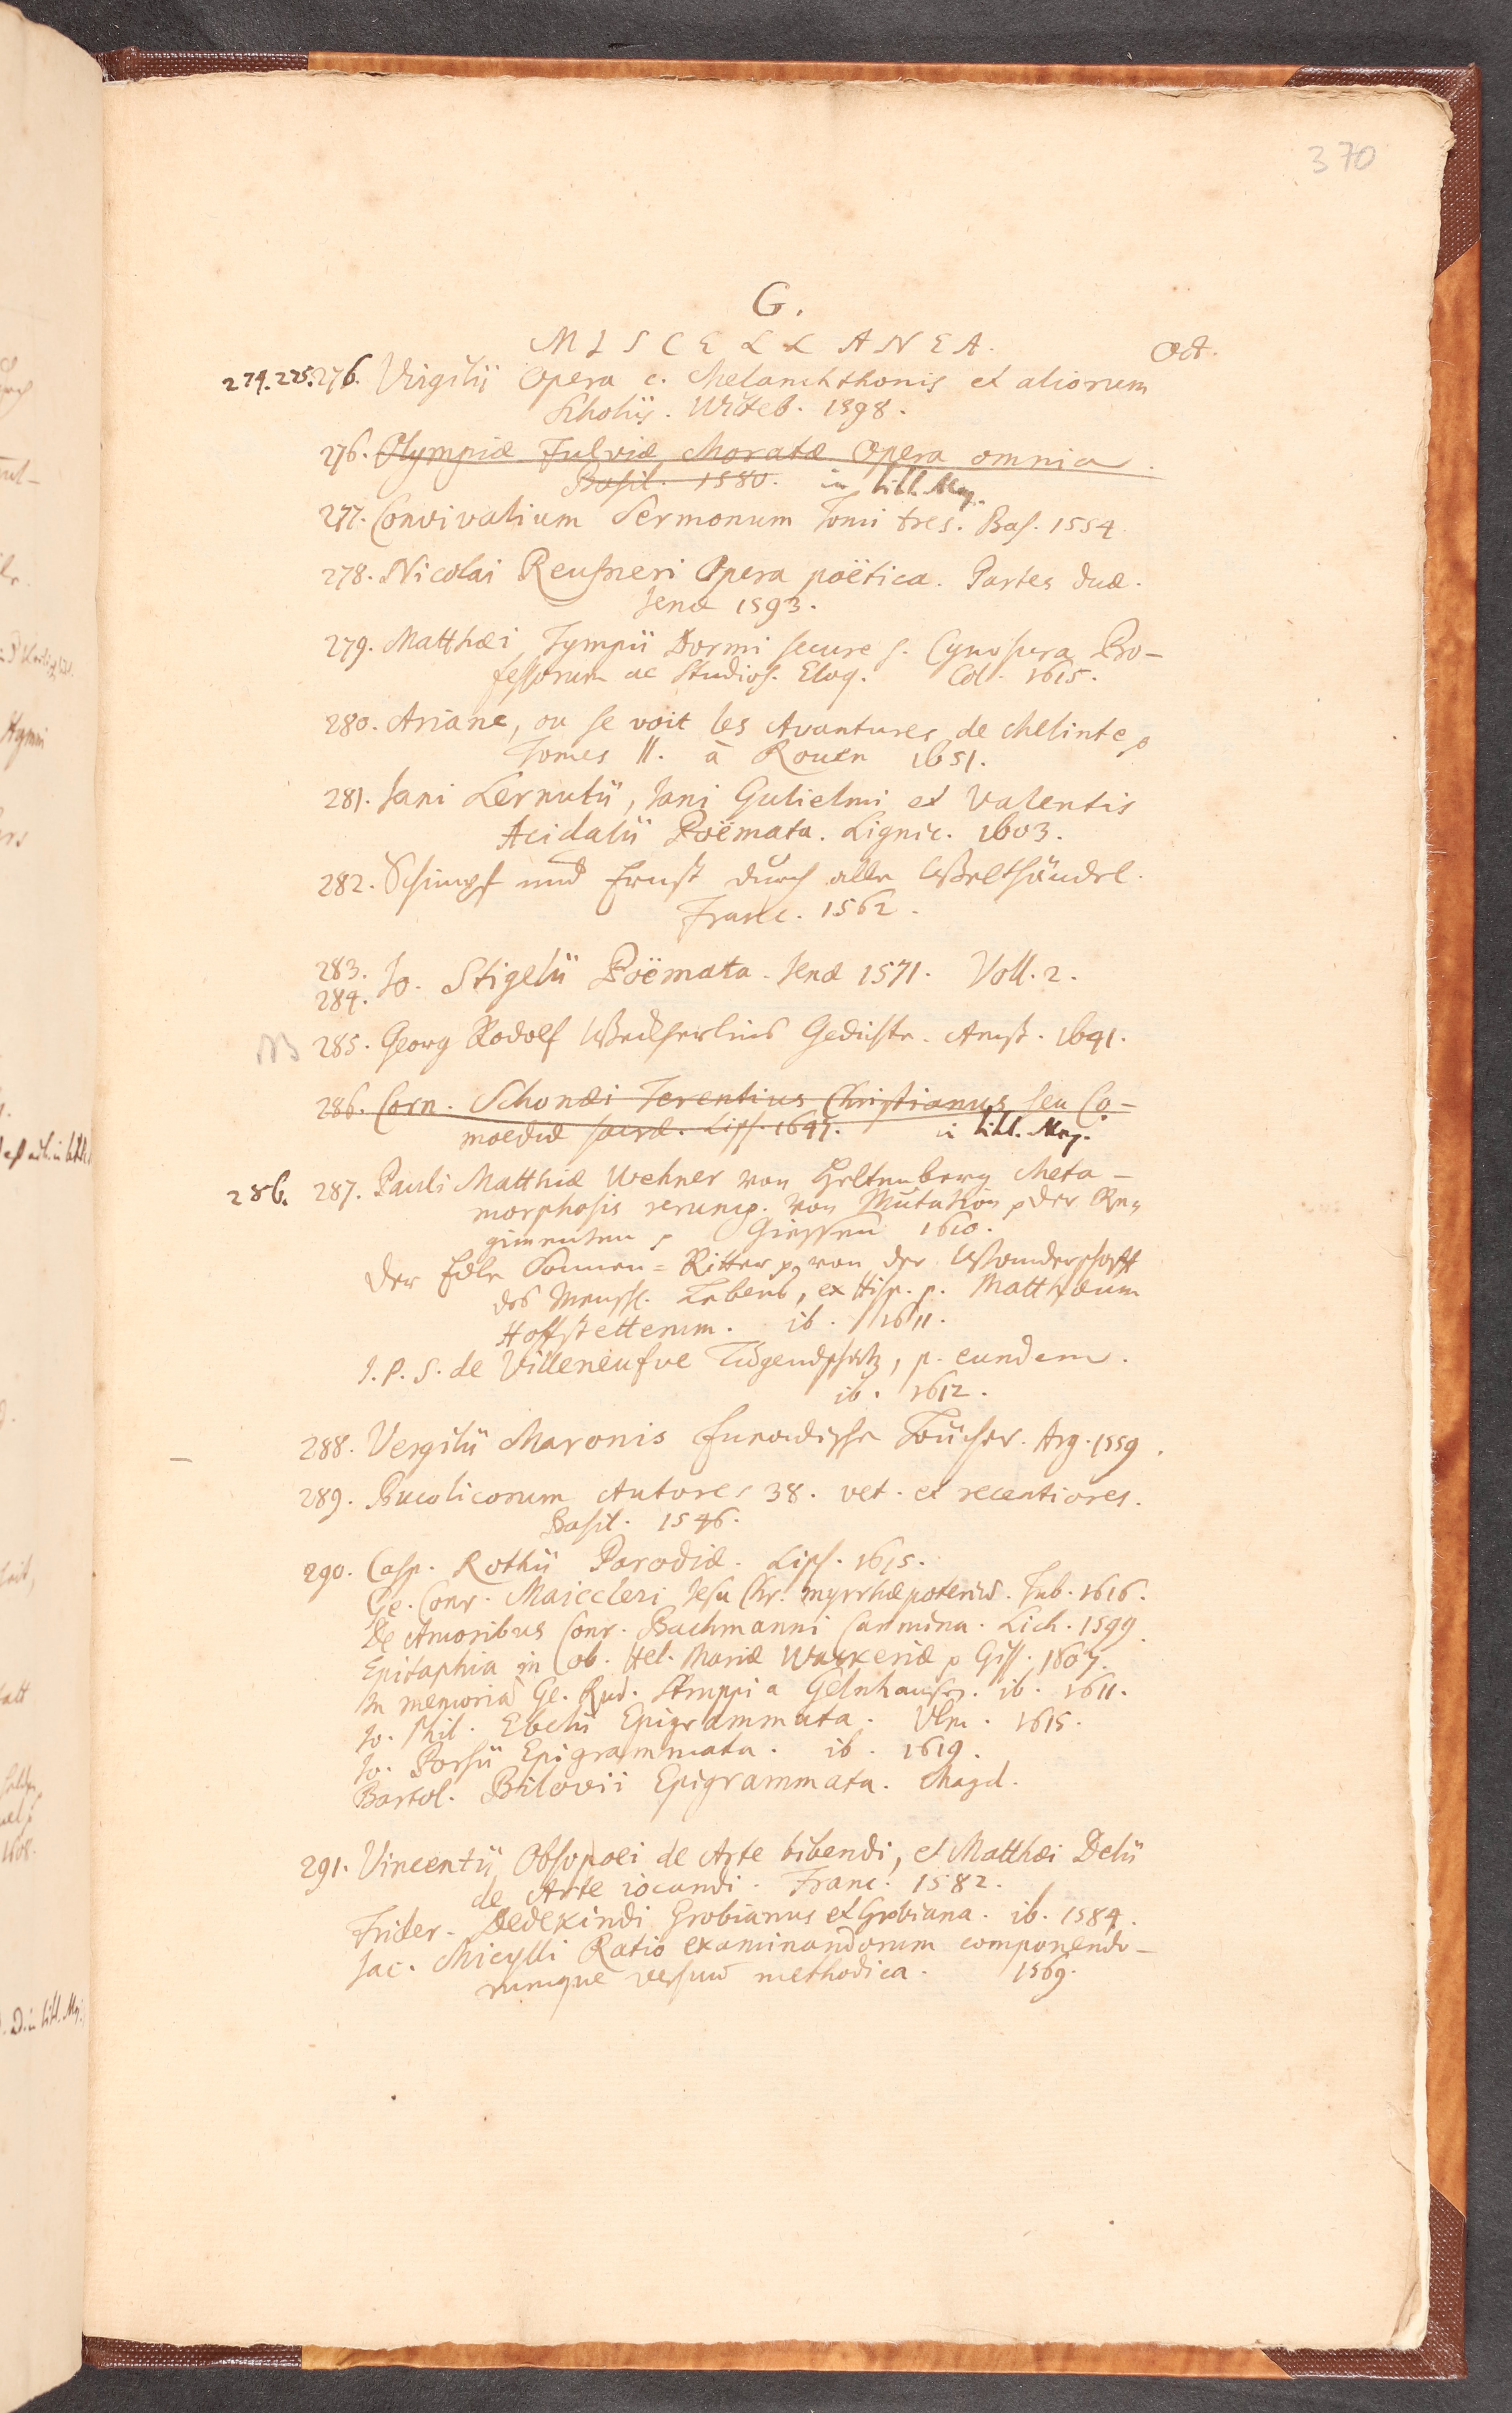 370
G.
MISCELLANEA. Oct.
274. 275. 276. Virgilii Opera c. Melanchthonis et aliorum
Scholiis. Witeb. 1598.
276. Olympiæ Fulviæ Moratæ Opera omnia.
Basil. 1580. in bibl. Maj.
277. Convivalium Sermonum Tomi tres. Bas. 1554.
278. Nicolai Reusneri Opera poëtica. Partes duæ.
Jenæ 1593.
279. Matthæi Tympii Dormi secure s. Cynosura Pro-
fessorum ac Studios. Eloq. Col. 1615.
280. Ariane, ou se voit les Avantures de Melinte p
Tomes II. à Rouen 1651.
281. Jani Lernutii, Jani Gulielmi et Valentis
Acidalii Poëmata. Lignic. 1603.
282. Schimpf und Ernst durch alle Welthändel.
Franc. 1562.
283.
284. Jo. Stigelii Poëmata. Jenæ 1571. Voll. 2.
NB 285. Georg Rodolf Weckherlins Gedichte. Amst. 1641.
286. Corn. Schonæi Terentius Christianus seu Co-
moediæ sacræ. Lips. 1647. in bibl. Maj.
286. 287. Pauli Matthiæ Wehner von Heltenberg Meta-
morphosis rerump. von Mutation p der Re-
gimenten p Giessen 1610.
Der Edle Sonnen-Ritter p von der Wanderschafft
des Menschl. Lebens, ex Hisp. p. Matthæum
Hoffstetterum. ib. 1611.
J. P. S. de Villeneufve Tugendschatz, p. eundem.
ib. 1612.
288. Vergilii Maronis Eneadische Bücher. Arg. 1559.
289. Bucolicorum Autores 38. vet. et recentiores.
Basil. 1546.
290. Casp. Rothii Parodiæ. Lips. 1615.
Ge. Conr. Maiccleri Jesu Chr. myrrhæpoterius. Tub. 1616.
De Amoribus Conr. Bachmanni Carmina. Lich. 1599.
Epitaphia in ob. Hel. Mariæ Wackeriæ p Giss. 1607.
In memoriã Ge. Rud. Struppi a Gelnhausen. ib. 1611.
Jo. Phil. Ebelii Epigrammata. Vlm. 1615.
Jo. Porsii Epigrammata. ib. 1619.
Bartol. Bilovii Epigrammata. Magd.
291. Vincentii Obsopoei de Arte bibendi, et Matthæi Delii
de Arte iocandi. Franc. 1582.
Frider. Dedekindi Grobianus et Grobiana. ib. 1584.
Jac. Micylli Ratio examinandorum componendo-
rumque versuum methodica. 1569.